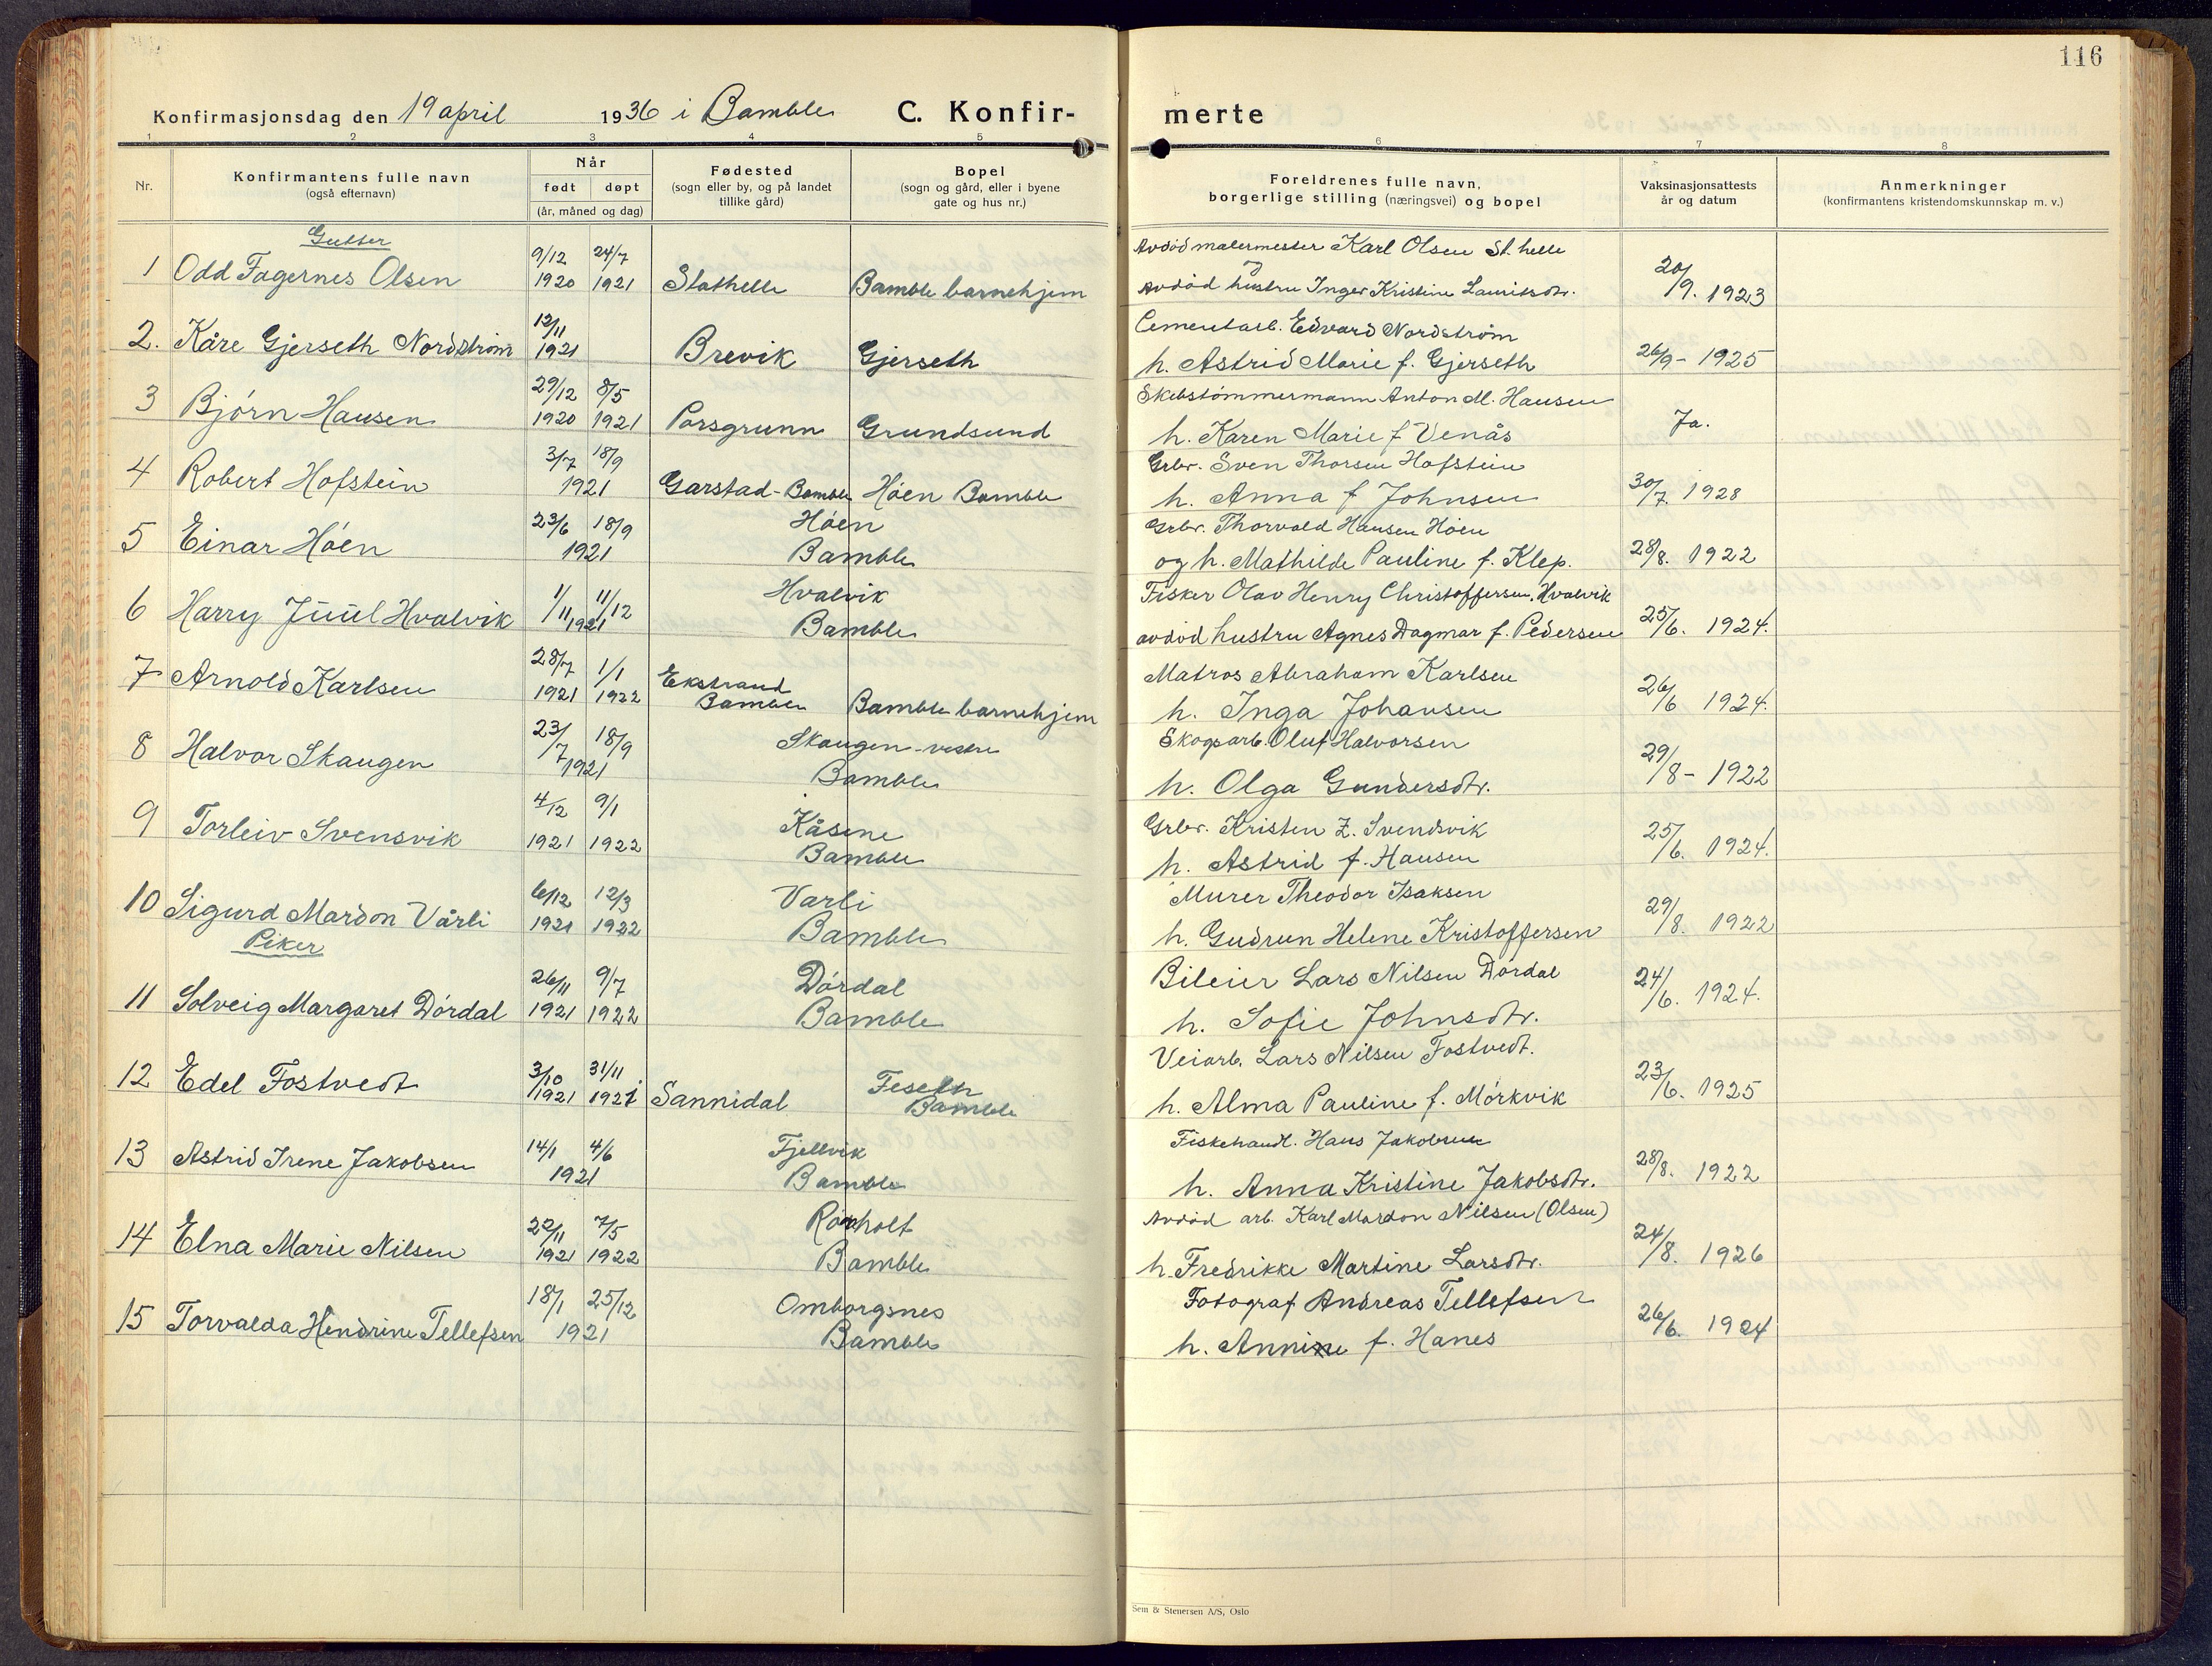 116
Konfirmasjonsdag den 19 april 1936 i Bamble C. Konfir- merte
1 2 3 4 5 6 7 8
Nr.
Konfirmantens fulle navn
(også efternavn)
Når
født døpt
(år, måned og dag)
Fødested
(sogn eller by, og på landet
tillike gård)
Bopel
(sogn og gård, eller i byene
gate og hus nr.)
Foreldrenes fulle navn,
borgerlige stilling (næringsvei) og bopel
Vaksinasjonsattests
år og datum
Anmerkninger
(konfirmantens kristendomskunnskap m. v.)
Gutter
9/12 24/7 Avdød malermester Karl Olsen St. helle
og
1 Odd Fagernes Olsen 1920 1921 Stathelle Bamble barnehjem avdød hustru Inger Kristine Lauritsdtr. 20/9. 1923
12/11 Cementarb. Edvard Nordstrøm
2. Kåre Gjerseth Nordstrøm 1921 Brevik Gjerseth h. Astrid Marie f. Gjerseth 26/9 - 1925
29/12 8/5 Skibstømmermann Anton M. Hansen
3 Bjørn Hansen 1920 1921 Porsgrunn Grundsund h. Karen Marie f Venås Ja.
3/7 18/9 Grbr. Sven Thorsen Hofstein
4 Robert Hofstein 1921 Garstad - Bamble Høen Bamble h. Anna f Johnsen 30/7. 1928
23/6 18/9 Høen Grbr. Thorvald Hansen Høen
5 Einar Høen 1921 Bamble og h. Mathilde Pauline f. Klep. 28/8. 1922
1/11 11/12 Hvalvik Fisker Olav Henry Christoffersen, Hvalvik
6 Harry Juul Hvalvik 1921 Bamble avdød hustru Agnes Dagmar f. Pedersen 25/6. 1924.
28/7 1/1 Ekstrand Matros Abraham Karlsen
7 Arnold Karlsen 1921 1922 Bamble Bamble barnehjem h. Inga Johansen 26/6 1924.
23/7 18/9 Skaugen - vestre Skogsarb. Oluf Halvorsen
8 Halvor Skaugen 1921 Bamble h. Olga Gundersdtr. 29/8 - 1922
4/12 9/1 Kåsene Grbr. Kristen Z. Svendsvik
9 Torleiv Svensvik 1921 1922 Bamble h. Astrid f. Hansen 25/6. 1924.
6/12 12/3 Varli Murer Theodor Isaksen
10 Sigurd Mardon Vårli 1921 1922 Bamble h. Gudrun Helene Kristoffersen 29/8. 1922
Piker
26/11 9/7 Dørdal Bileier Lars Nilsen Dørdal
11 Solveig Margaret Dørdal 1921 1922 Bamble h. Sofie Johnsdtr. 24/6. 1924.
3/10 31/11 Feseth Veiarb. Lars Nilsen Fostvedt.
12 Edel Fostvedt 1921 1921 Sannidal Bamble h. Alma Pauline f. Mørkvik 23/6. 1925
14/1 4/6 Fjellvik Fiskehandl. Hans Jakobsen
13 Astrid Irene Jakobsen 1921 Bamble h. Anna Kristine Jakobsdtr. 28/8. 1922
22/11 7/5 Rørholt Avdød arb. Karl Mardon Nilsen (Olsen)
14 Elna Marie Nilsen 1921 1922 Bamble h. Fredrikke Martine Larsdtr. 24/8. 1926
18/1 25/12 Omborgsnes Fotograf Andreas Tellefsen
15 Torvalda Hendrine Tellefsen 1921 Bamble h. Annine f. Hanes 26/6. 1924
Sem & Stenersen A/S, Oslo